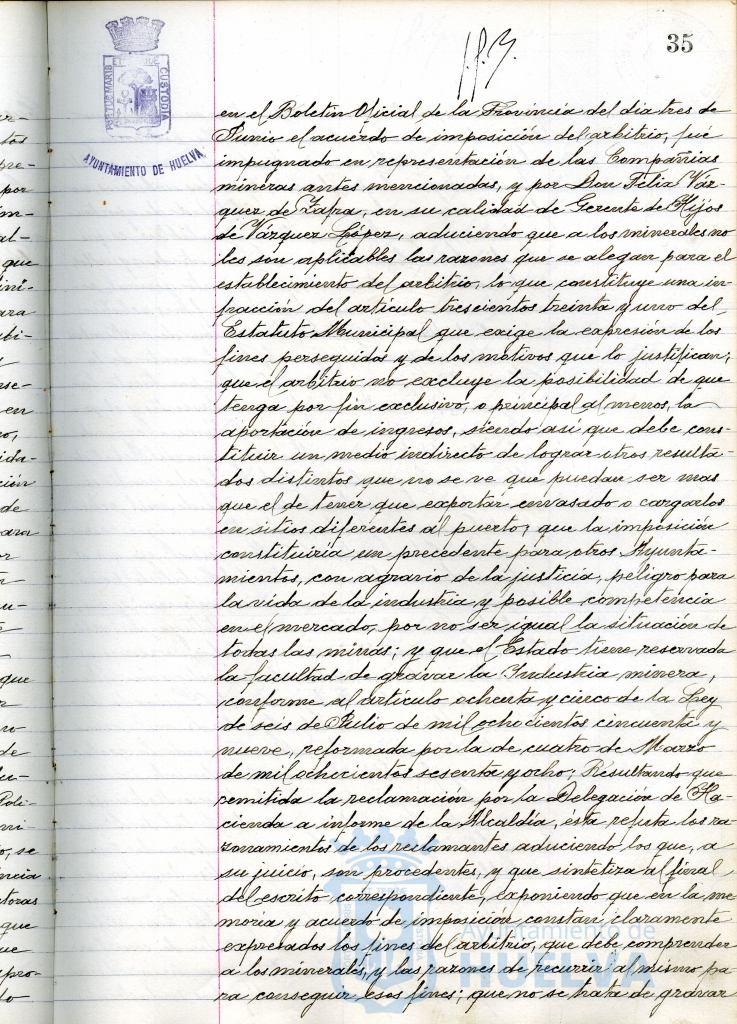 35
en el Boletín Oficial de la Provincia del dia tres de
Junio el acuerdo de imposición del arbitrio, fué
impugnado en representación de las Compañias
mineras antes mencionadas, y por Don Felix Váz-
quez de Zafra, en su calidad de Gerente de Hijos
de Vázquez López, aduciendo que a los minerales no
les son aplicables las razones que se alegan para el
establecimiento del arbitrio, lo que constituye una in-
fracción del artículo trescientos treinta y uno del
Estatuto Municipal que exige la expresión de los
fines perseguidos y de los motivos que lo justifican;
que el arbitrio no excluye la posibilidad de que
tenga por fin exclusivo, o principal al menos, la
aportación de ingresos, siendo así que debe cons-
tituir un medio indirecto de lograr otros resulta-
dos distintos que no se ve que puedan ser mas
que el de tener que exportar envasado o cargarlos
en sitios diferentes al puerto; que la imposición
constituiría un precedente para otros Ayunta-
mientos, con agravio de la justicia, peligro para
la vida de la industria y posible competencia
en el mercado, por no ser igual la situación de
todas las minas; y que el Estado tiene reservada
la facultad de gravar la Industria minera,
conforme al artículo ochenta y cinco de la Ley
de seis de Julio de mil ochocientos cincuenta y
nueve, reformada por la de cuatro de Marzo
de mil ochocientos sesenta y ocho; Resultando que
remitida la reclamación por la Delegación de Ha-
cienda a informe de la Alcaldía, ésta refuta los ra-
zonamientos de los reclamantes aduciendo los que, a
su juicio, son procedentes, y que sintetiza al final
del escrito correspondiente, exponiendo que en la me-
moria y acuerdo de imposición constan claramente
expresados los fines del arbitrio, que debe comprender
a los minerales, y las razones de recurrir al mismo pa-
ra conseguir esos fines; que no se trata de gravar
PORTUS MARIS
CUSTODIA
AYUNTAMIENTO DE HUELVA
Ayuntamiento de
HUELVA